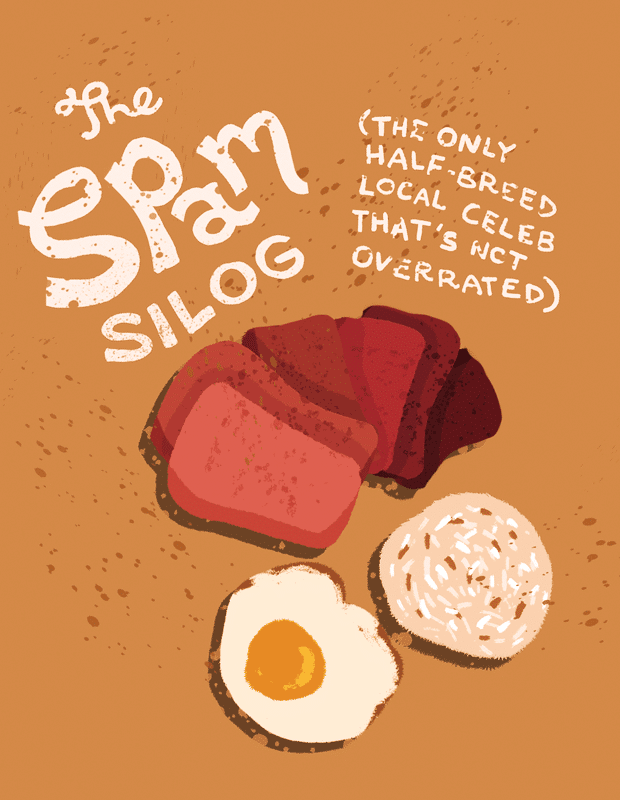 The
Spam
SILOG
(THE ONLY
HALF-BREED
LOCAL CELEB
THAT'S NOT
OVERRATED)